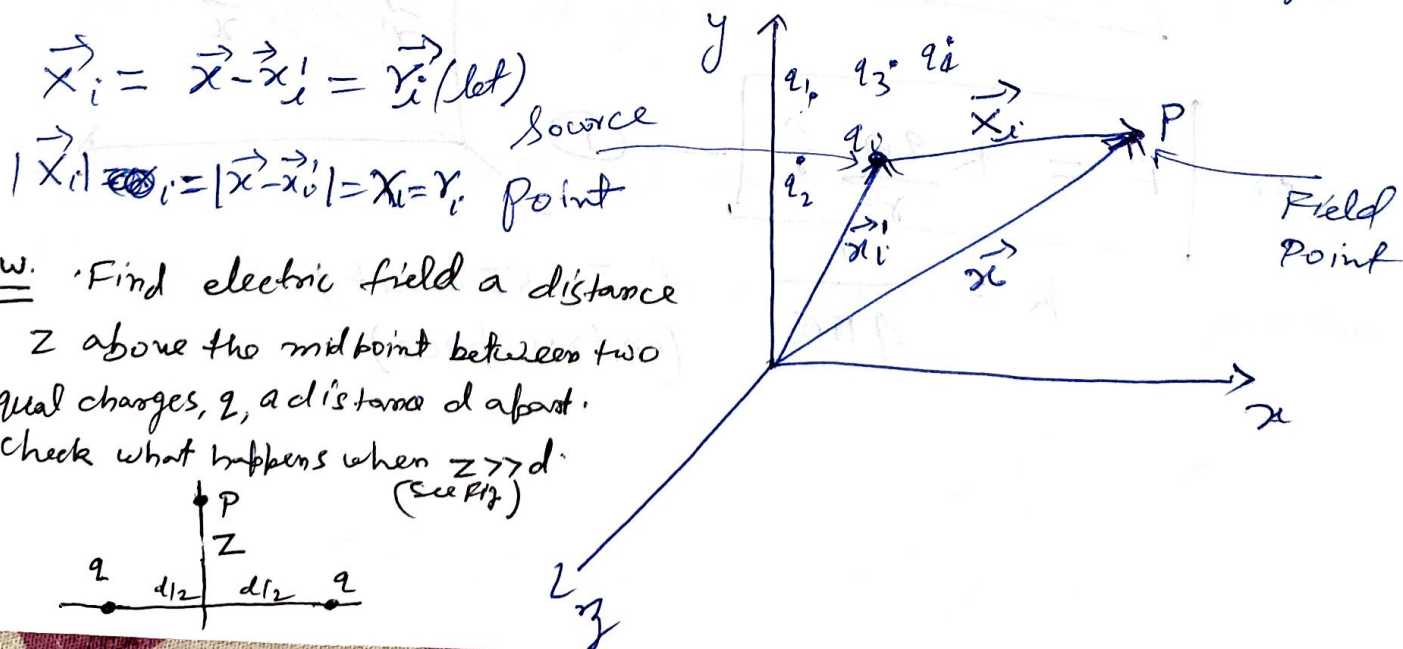 X⃗ᵢ = x⃗ - x⃗ᵢ' = r⃗ᵢ (let)
|X⃗ᵢ| ᵢ = |x⃗ - x⃗ᵢ'| = Xᵢ = rᵢ
Source
Point
w. Find electric field a distance
z above the midpoint between two
qual charges, q, a distance d apart.
Check what happens when z>>d.
(See Fig)
P
z
q d/2 d/2 q
y
q₁ q₃ qᵢ
qᵢ X⃗ᵢ P
q₂
x⃗ᵢ'
x⃗
Field
Point
x
z